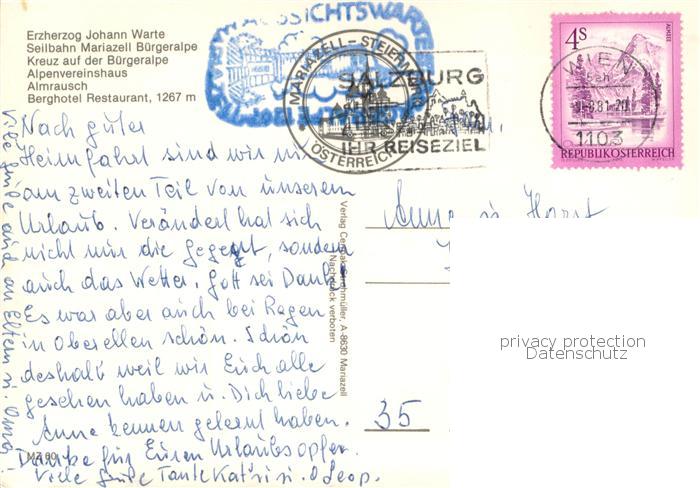 Erzherzog Johann Warte
Seilbahn Mariazell Bürgeralpe
Kreuz auf der Bürgeralpe
Alpenvereinshaus
Almrausch
Berghotel Restaurant, 1267 m
AUSSICHTSWARTE
MARIAZELL - STEIERMARK
ÖSTERREICH
SALZBURG
IHR REISEZIEL
4S
ALMSEE
WIEN
1103
REPUBLIK ÖSTERREICH
Nach guter
Heimfahrt sind wir nun
am zweiten Teil von unserem
Urlaub. Verändert hat sich
nicht nur die Gegend, sondern
auch das Wetter, Gott sei Dank.
Es war aber auch bei Regen
in Oberellen schön. Schön
deshalb weil wir Euch alle
gesehen haben u. Dich liebe
Anne kennen gelernt haben.
Danke für Euren Urlaubsopfer.
Viele Grüße Tante u. Leop.
Viele Grüße auch an Eltern u. Oma!
MZ 60
Verlag Buchmüller, A-8630 Mariazell
Nachdruck verboten
Anne u. Horst
35
privacy protection
Datenschutz